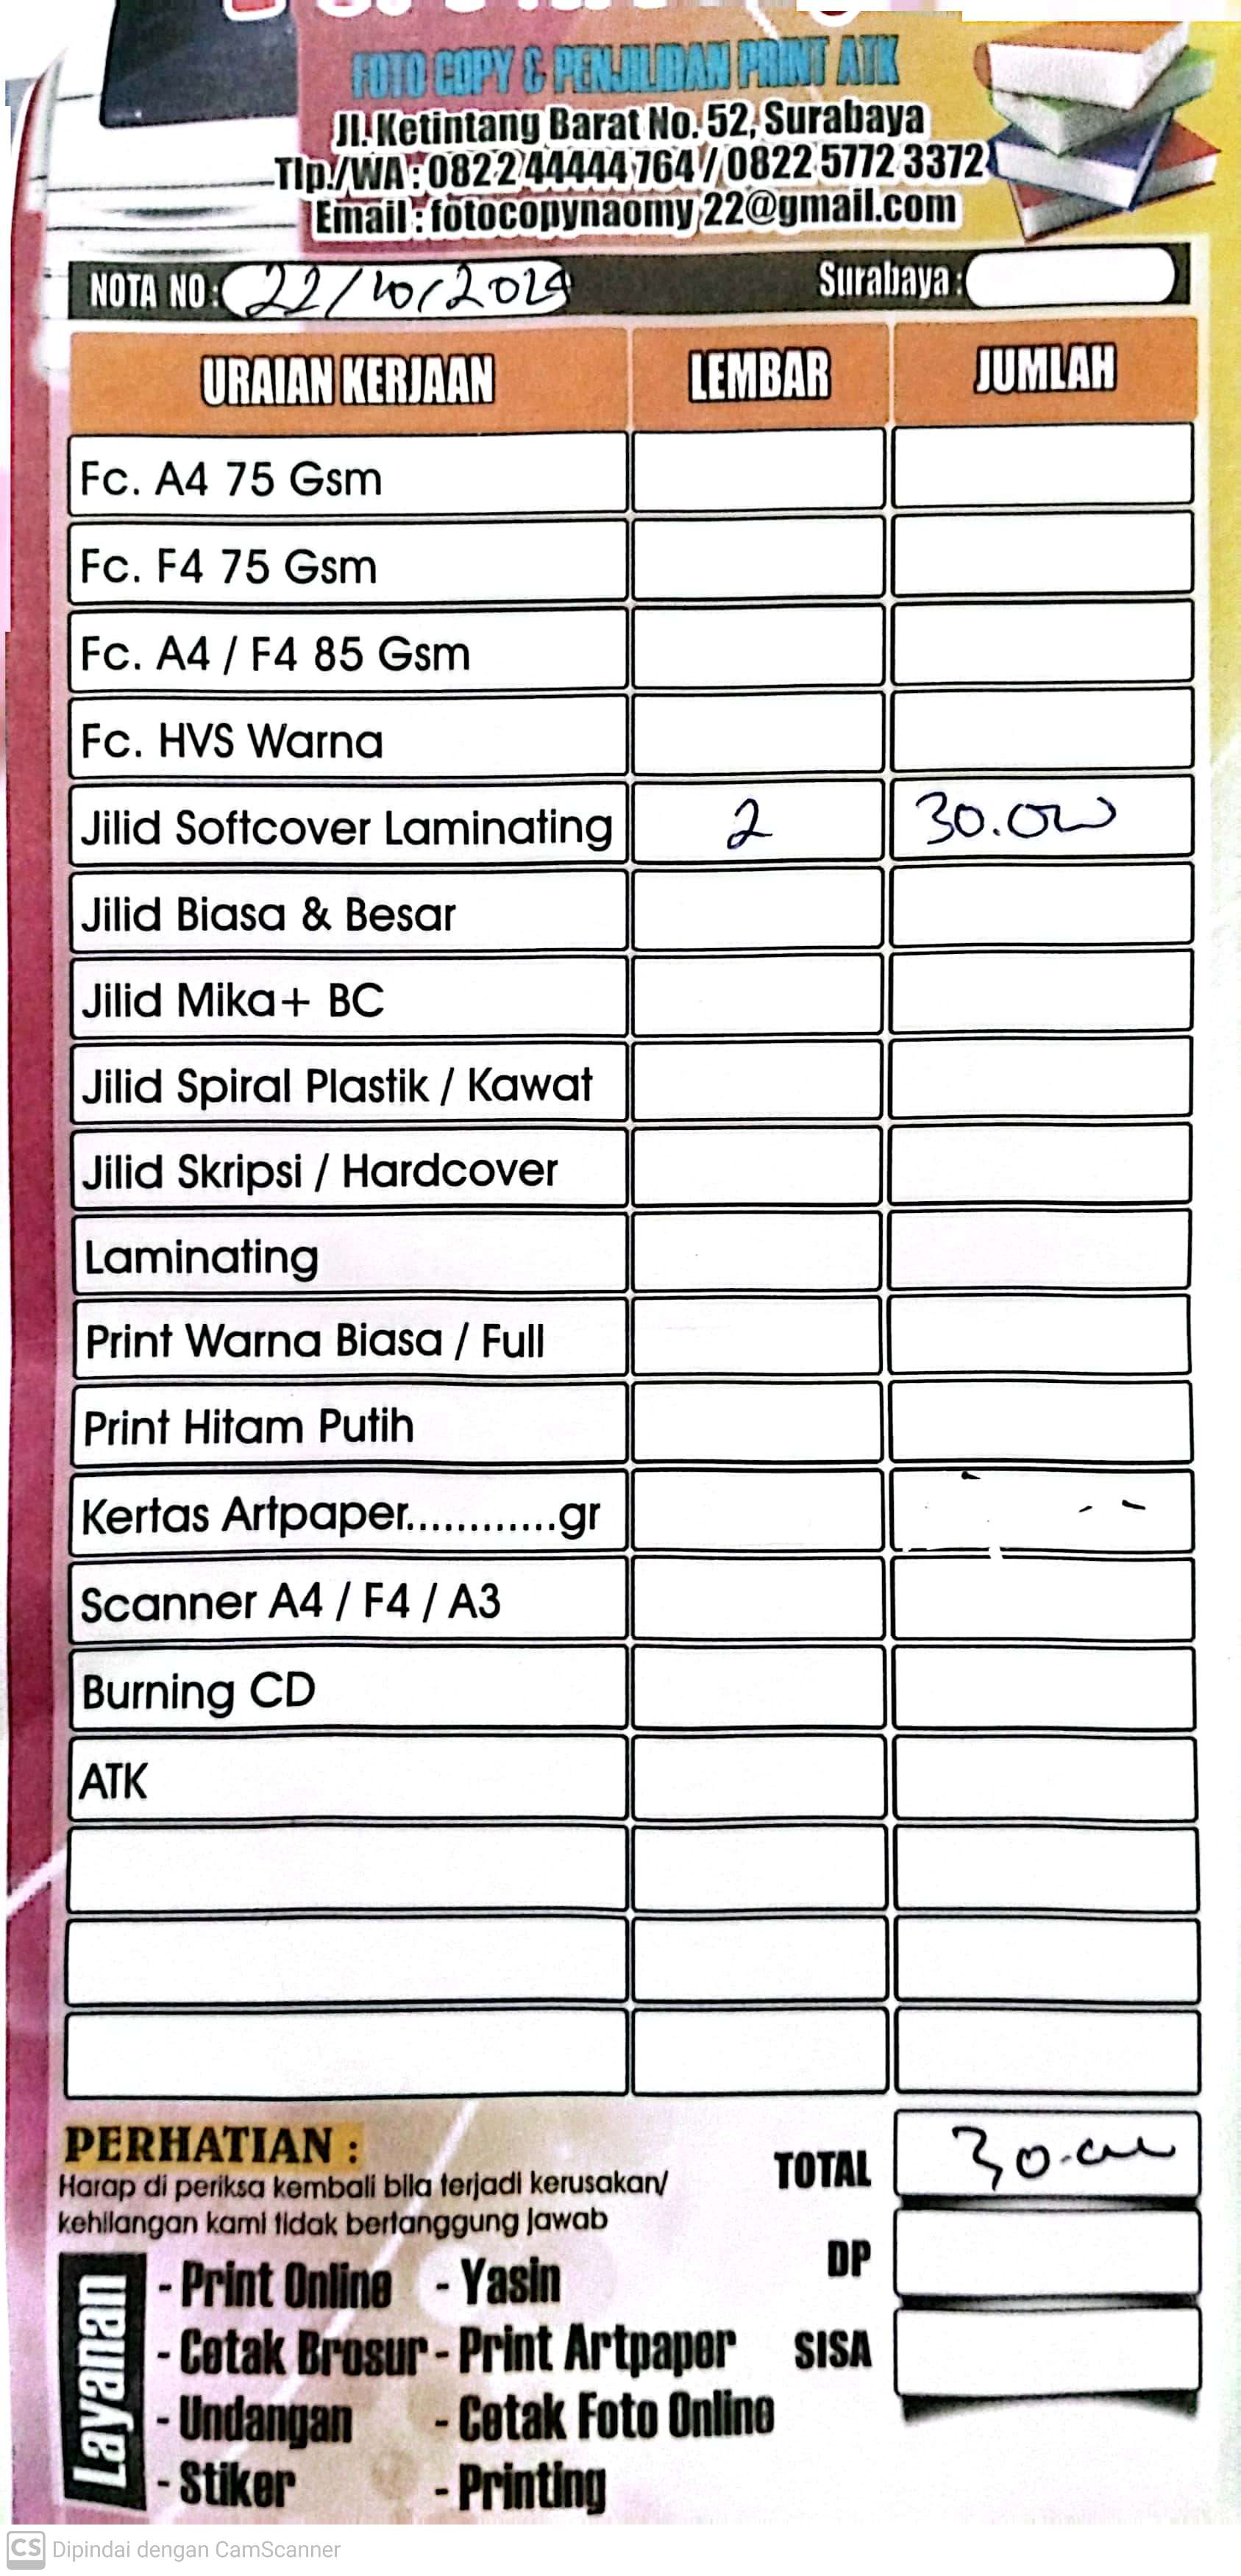 FOTO COPY & PENJILIDAN PRINT ATK
Jl. Ketintang Barat No. 52, Surabaya
Tlp./WA : 0822 44444 764 / 0822 5772 3372
Email : fotocopynaomy 22@gmail.com
NOTA NO : 22/10/2024 Surabaya :
URAIAN KERJAAN LEMBAR JUMLAH
Fc. A4 75 Gsm
Fc. F4 75 Gsm
Fc. A4 / F4 85 Gsm
Fc. HVS Warna
Jilid Softcover Laminating 2 30.000
Jilid Biasa & Besar
Jilid Mika+ BC
Jilid Spiral Plastik / Kawat
Jilid Skripsi / Hardcover
Laminating
Print Warna Biasa / Full
Print Hitam Putih
Kertas Artpaper............gr
Scanner A4 / F4 / A3
Burning CD
ATK
PERHATIAN :
Harap di periksa kembali bila terjadi kerusakan/
kehilangan kami tidak bertanggung jawab
TOTAL 30.000
DP
SISA
Layanan
- Print Online - Yasin
- Cetak Brosur - Print Artpaper
- Undangan - Cetak Foto Online
- Stiker - Printing
CS Dipindai dengan CamScanner